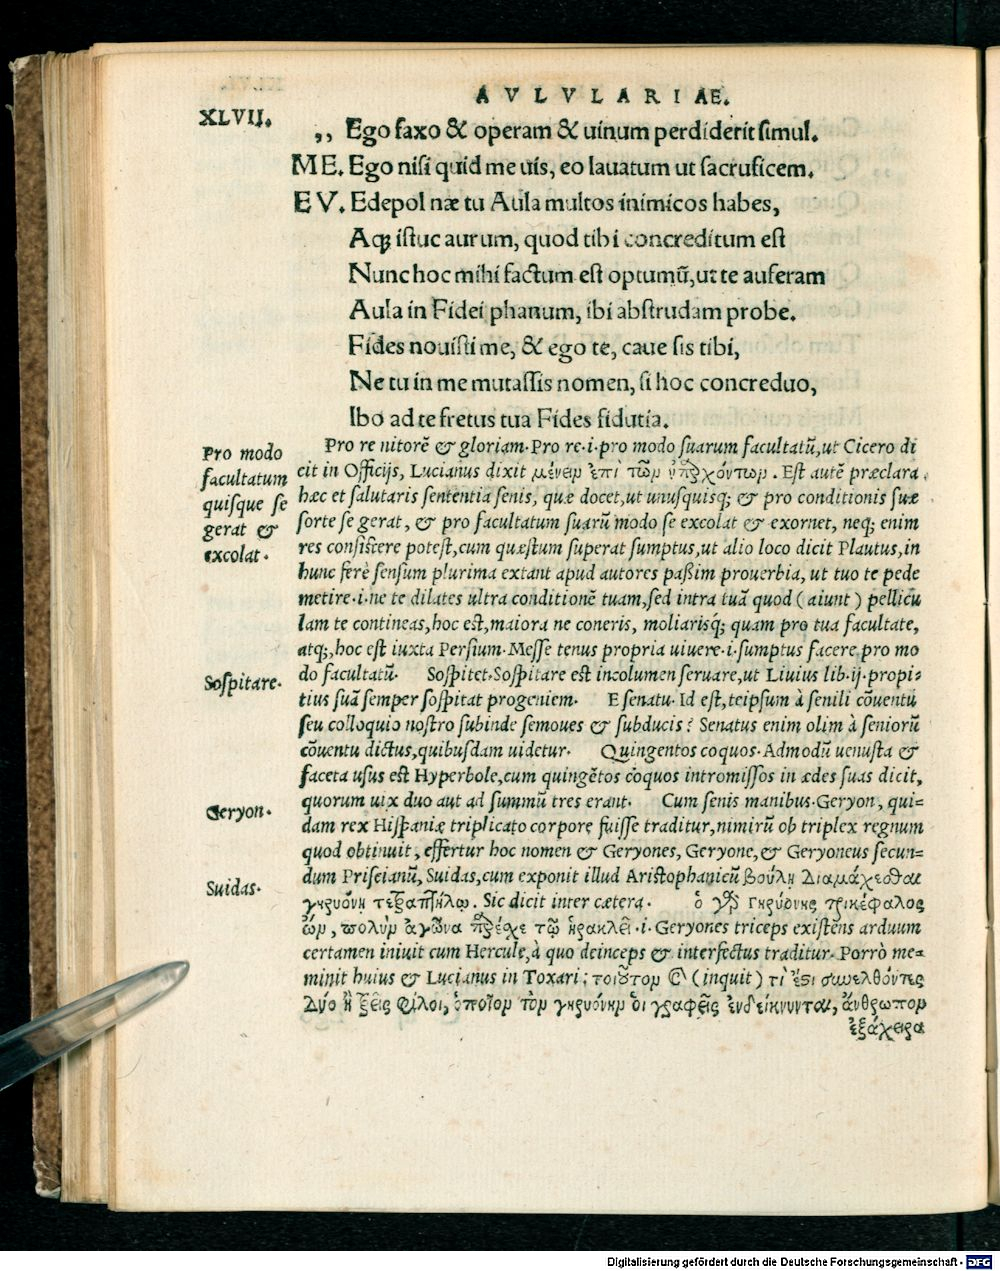 AVLVLARIAE.
XLVII.
,, Ego faxo & operam & uinum perdiderit simul.
ME. Ego nisi quid me uis, eo lauatum ut sacruficem.
EV. Edepol næ tu Aula multos inimicos habes,
Atq; istuc aurum, quod tibi concreditum est
Nunc hoc mihi factum est optumũ, ut te auferam
Aula in Fidei phanum, ibi abstrudam probe.
Fides nouisti me, & ego te, caue sis tibi,
Ne tu in me mutassis nomen, si hoc concreduo,
Ibo ad te fretus tua Fides fidutia.
Pro modo
facultatum
quisque se
gerat &
excolat.
Pro re nitorẽ & gloriam. Pro re .i. pro modo suarum facultatũ, ut Cicero di
cit in Officijs, Lucianus dixit μένειν ἐπὶ τῶν ὑπαρχόντων. Est autẽ præclara
hæc et salutaris sententia senis, quæ docet, ut unusquisq; & pro conditionis suæ
sorte se gerat, & pro facultatum suarũ modo se excolat & exornet, neq; enim
res consistere potest, cum quæstum superat sumptus, ut alio loco dicit Plautus, in
hunc ferè sensum plurima extant apud autores paßim prouerbia, ut tuo te pede
metire .i. ne te dilates ultra conditionẽ tuam, sed intra tuã quod (aiunt) pellicu
lam te contineas, hoc est, maiora ne coneris, moliarisq́; quam pro tua facultate,
atq;, hoc est iuxta Persium. Messe tenus propria uiuere .i. sumptus facere pro mo
do facultatũ. Sospitet. Sospitare est incolumen seruare, ut Liuius lib. ij. propi-
tius suã semper sospitat progeniem. E senatu. Id est, teipsum à senili cõuentu
seu colloquio nostro subinde semoues & subducis? Senatus enim olim à seniorũ
cõuentu dictus, quibusdam uidetur. Quingentos coquos. Admodũ uenusta &
faceta usus est Hyperbole, cum quingẽtos coquos intromissos in ædes suas dicit,
quorum uix duo aut ad summũ tres erant. Cum senis manibus. Geryon, qui-
dam rex Hispaniæ triplicato corpore fuisse traditur, nimirũ ob triplex regnum
quod obtinuit, effertur hoc nomen & Geryones, Geryone, & Geryoneus secun-
dum Priscianũ, Suidas, cum exponit illud Aristophanicũ βούλῃ διαμάχεσθαι
γηρυόνῃ τετραπτήλῳ. Sic dicit inter cætera. ὁ γὰρ γηρύονης τρικέφαλος
ὤν, πολὺν ἀγῶνα παρέσχε τῷ ἡρακλεῖ .i. Geryones triceps existens arduum
certamen iniuit cum Hercule, à quo deinceps & interfectus traditur. Porrò me-
minit huius & Lucianus in Toxari: τοιοῦτον (inquit) τι ἐστι συνελθόντες
δύο ἢ τρεῖς φίλοι, ὁποῖον τὸν γηρυόνην οἱ γραφεῖς ἐνδείκνυνται, ἄνθρωπον
ἑξάχειρα
Sospitare.
Geryon.
Suidas.
Digitalisierung gefördert durch die Deutsche Forschungsgemeinschaft - DFG